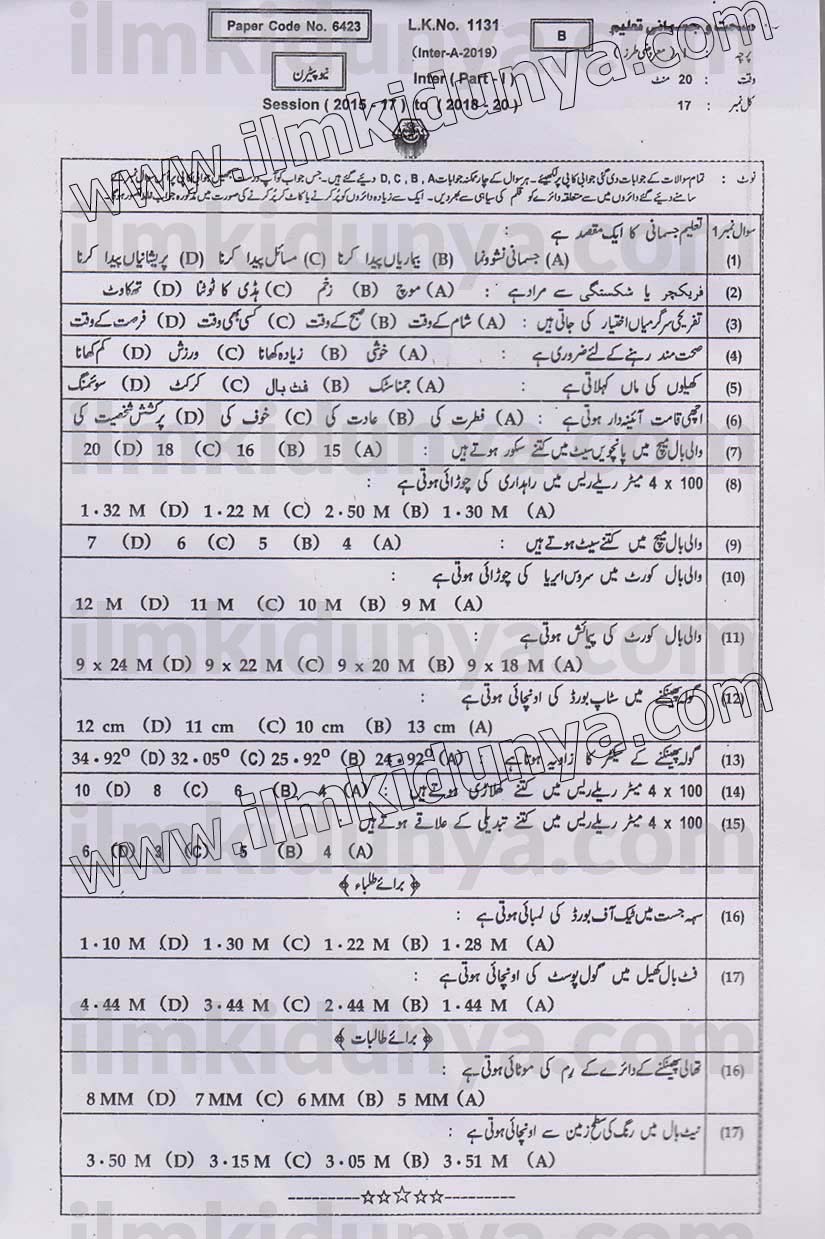 Paper Code No. 6423
L.K.No. 1131
B
صحت و جسمانی تعلیم
(Inter-A-2019)
پرچہ : I ( معروضی طرز )
نیو پیٹرن
Inter ( Part - I )
وقت : 20 منٹ
Session ( 2015 - 17 ) to ( 2018 - 20 )
کل نمبر : 17
نوٹ : تمام سوالات کے جوابات دی گئی جوابی کاپی پر لکھیئے۔ ہر سوال کے چار ممکنہ جوابات D , C , B , A دیئے گئے ہیں۔ جس جواب کو آپ درست سمجھیں جوابی کاپی پر اس سوال نمبر کے
سامنے دیئے گئے دائروں میں سے متعلقہ دائرے کو قلم کی سیاہی سے بھر دیں۔ ایک سے زیادہ دائروں کو پُر کرنے یا کاٹ کر پُر کرنے کی صورت میں مذکورہ جواب غلط تصور ہو گا۔
سوال نمبر 1 تعلیم جسمانی کا ایک مقصد ہے :
(1) (A) جسمانی نشوونما (B) بیماریاں پیدا کرنا (C) مسائل پیدا کرنا (D) پریشانیاں پیدا کرنا
(2) فریکچر یا شکستگی سے مراد ہے : (A) موچ (B) زخم (C) ہڈی کا ٹوٹنا (D) تھکاوٹ
(3) تفریحی سرگرمیاں اختیار کی جاتی ہیں : (A) شام کے وقت (B) صبح کے وقت (C) کسی بھی وقت (D) فرصت کے وقت
(4) صحت مند رہنے کے لئے ضروری ہے : (A) خوشی (B) زیادہ کھانا (C) ورزش (D) کم کھانا
(5) کھیلوں کی ماں کہلاتی ہے : (A) جمناسٹک (B) فٹ بال (C) کرکٹ (D) سوئمنگ
(6) اچھی قامت آئینہ دار ہوتی ہے : (A) فطرت کی (B) عادت کی (C) خوف کی (D) پرکشش شخصیت کی
(7) والی بال میچ میں پانچویں سیٹ میں کتنے سکور ہوتے ہیں : (A) 15 (B) 16 (C) 18 (D) 20
(8) 4 x 100 میٹر ریلے ریس میں راہداری کی چوڑائی ہوتی ہے :
(A) 1·30 M (B) 2·50 M (C) 1·22 M (D) 1·32 M
(9) والی بال میچ میں کتنے سیٹ ہوتے ہیں : (A) 4 (B) 5 (C) 6 (D) 7
(10) والی بال کورٹ میں سروس ایریا کی چوڑائی ہوتی ہے :
(A) 9 M (B) 10 M (C) 11 M (D) 12 M
(11) والی بال کورٹ کی پیمائش ہوتی ہے :
(A) 9 x 18 M (B) 9 x 20 M (C) 9 x 22 M (D) 9 x 24 M
(12) گولہ پھینکنے میں سٹاپ بورڈ کی اونچائی ہوتی ہے :
(A) 13 cm (B) 10 cm (C) 11 cm (D) 12 cm
(13) گولہ پھینکنے کے سیکٹر کا زاویہ ہوتا ہے : (A) 24·92⁰ (B) 25·92⁰ (C) 32·05⁰ (D) 34·92⁰
(14) 4 x 100 میٹر ریلے ریس میں کتنے کھلاڑی ہوتے ہیں : (A) 4 (B) 6 (C) 8 (D) 10
(15) 4 x 100 میٹر ریلے ریس میں کتنے تبدیلی کے علاقے ہوتے ہیں :
(A) 4 (B) 5 (C) 3 (D) 6
﴿ برائے طلباء ﴾
(16) سہہ جست میں ٹیک آف بورڈ کی لمبائی ہوتی ہے :
(A) 1·28 M (B) 1·22 M (C) 1·30 M (D) 1·10 M
(17) فٹ بال کھیل میں گول پوسٹ کی اونچائی ہوتی ہے :
(A) 1·44 M (B) 2·44 M (C) 3·44 M (D) 4·44 M
﴿ برائے طالبات ﴾
(16) تھالی پھینکنے کے دائرے کے رِم کی موٹائی ہوتی ہے :
(A) 5 MM (B) 6 MM (C) 7 MM (D) 8 MM
(17) نیٹ بال میں رنگ کی سطح زمین سے اونچائی ہوتی ہے :
(A) 3·51 M (B) 3·05 M (C) 3·15 M (D) 3·50 M
www.ilmkidunya.com
www.ilmkidunya.com
www.ilmkidunya.com
ilmkidunya.com
ilmkidunya.com
ilmkidunya.com
ilmkidunya.com
ilmkidunya.com
ilmkidunya.com
ilmkidunya.com